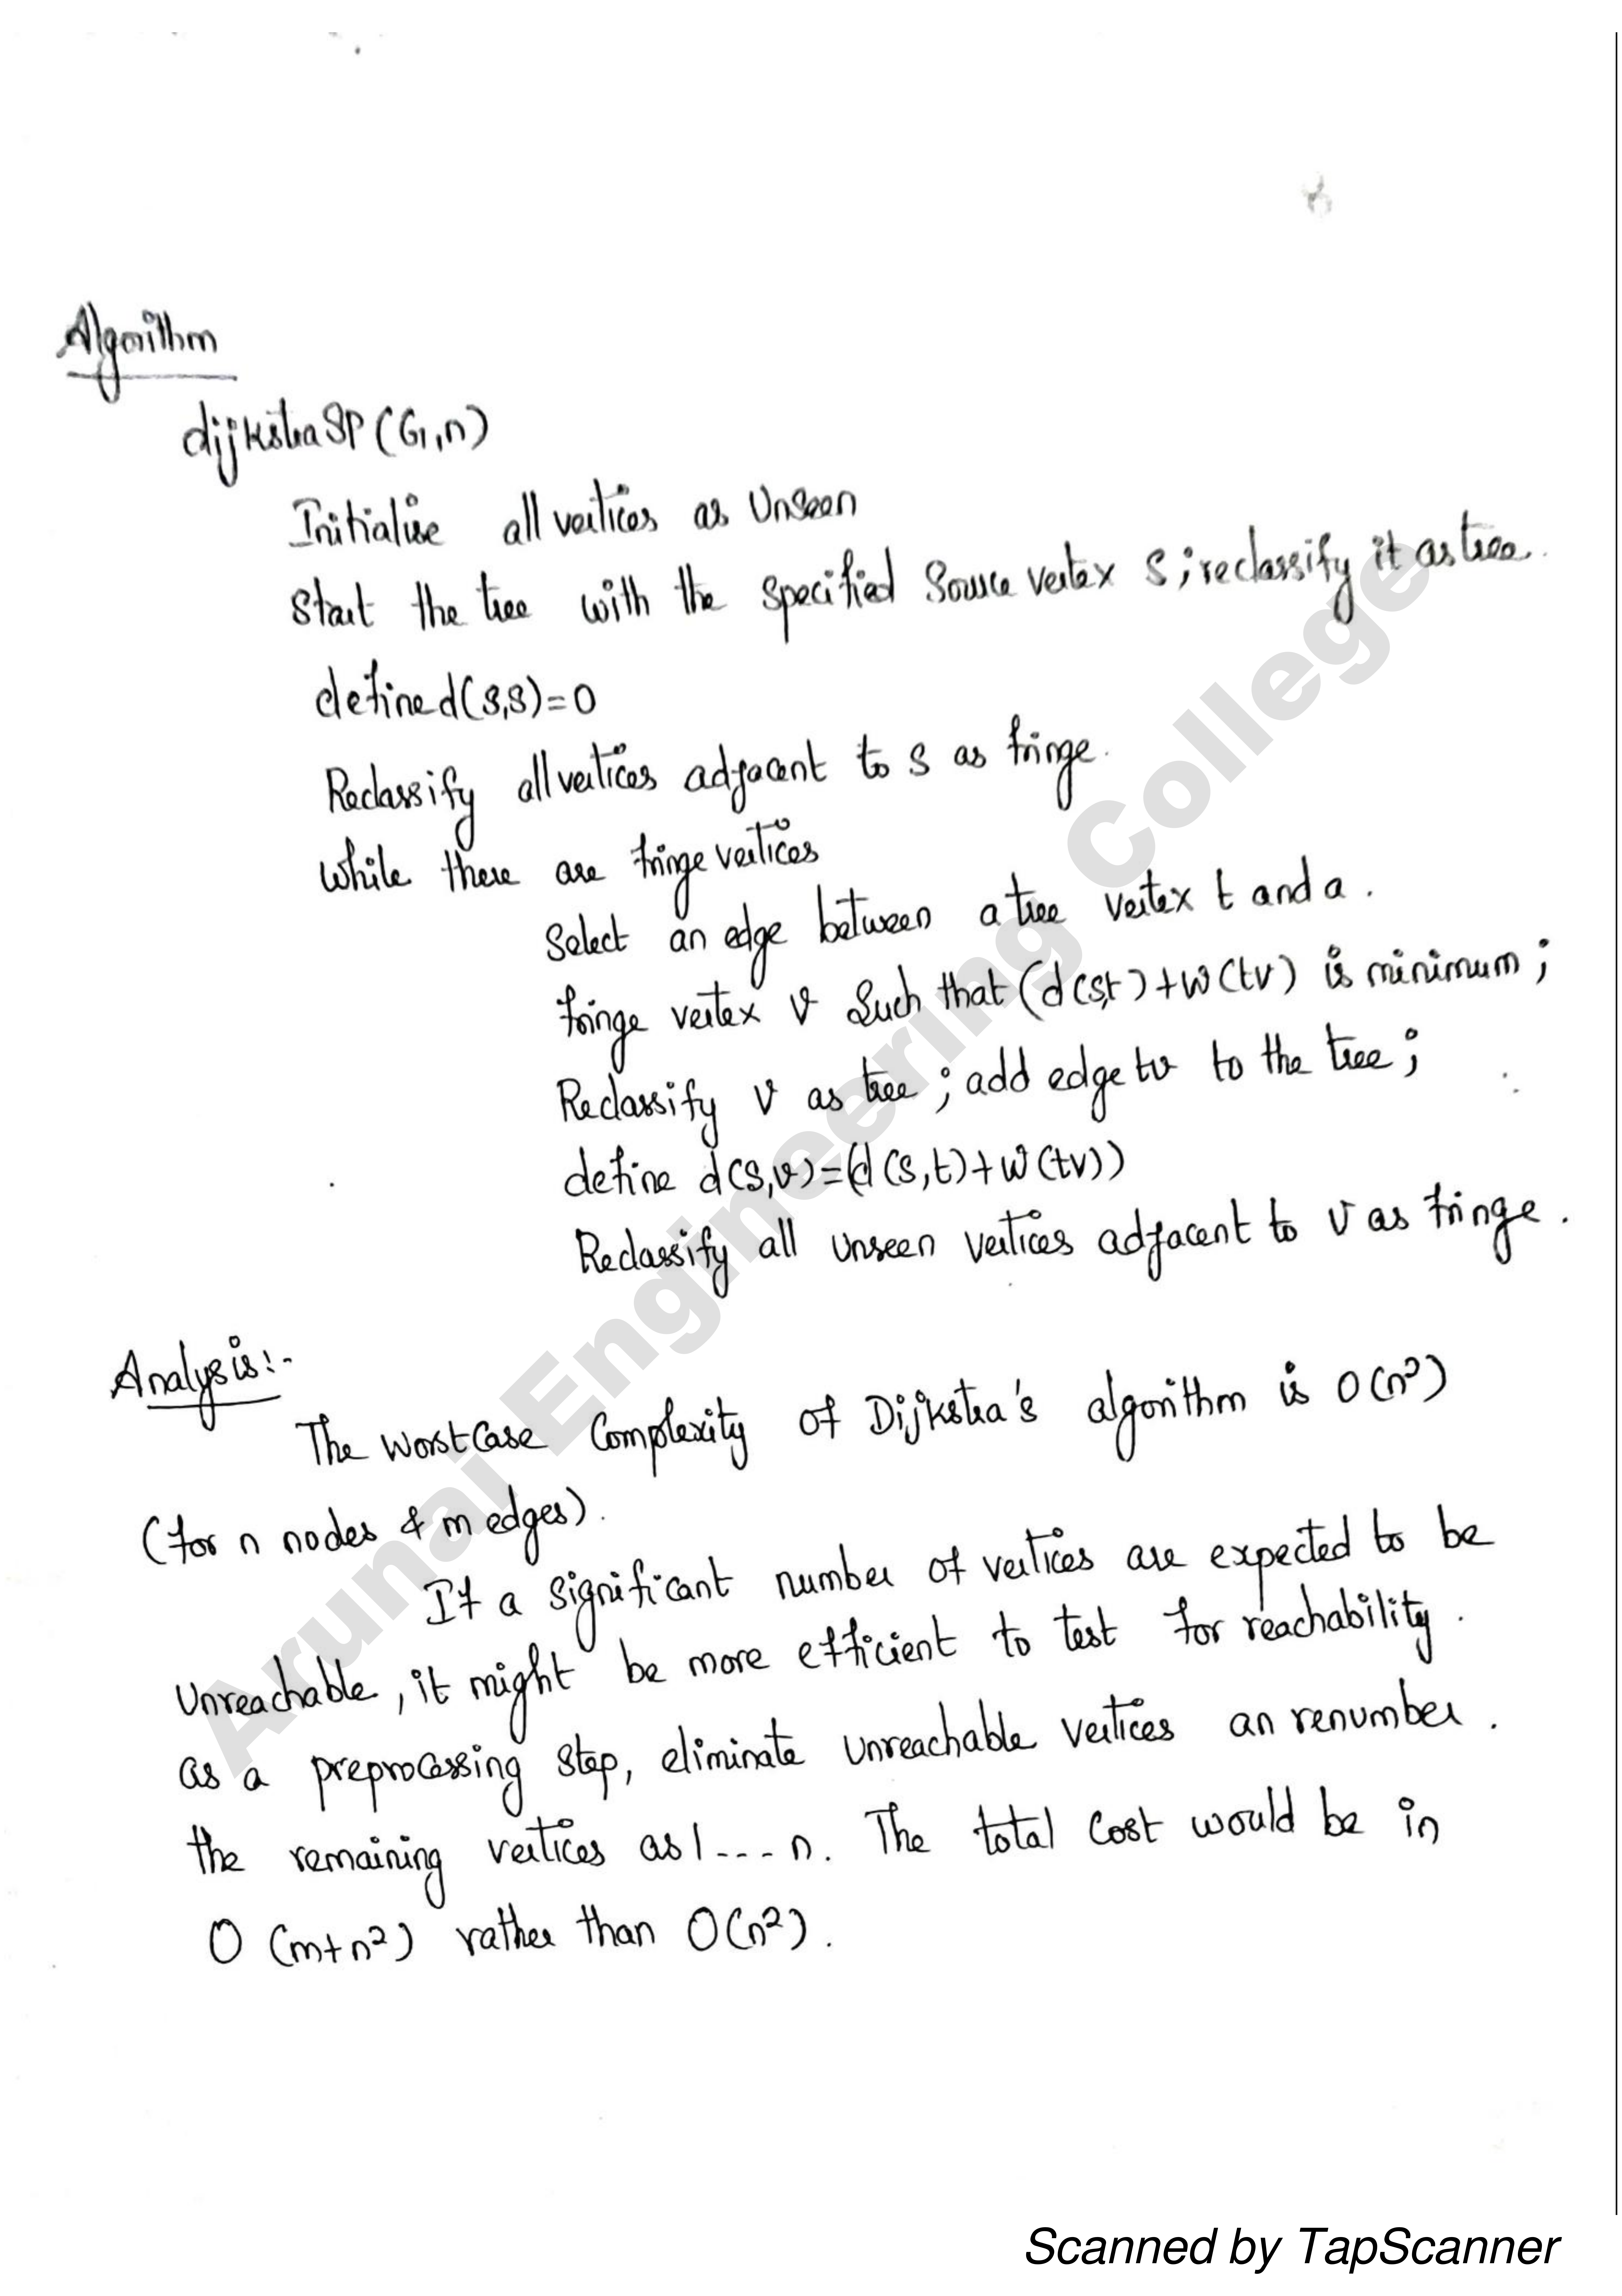 Algorithm
dijkstraSP(G,n)
Initialise all vertices as Unseen
Start the tree with the specified Source vertex S; reclassify it as tree.
define d(s,s)=0
Reclassify all vertices adjacent to s as fringe.
while there are fringe vertices
Select an edge between a tree vertex t and a.
fringe vertex v Such that (d(s,t)+w(tv) is minimum;
Reclassify v as tree; add edge tv to the tree;
define d(s,v)=(d(s,t)+w(tv))
Reclassify all unseen vertices adjacent to v as fringe.
Analysis:-
The Worst Case Complexity of Dijkstra's algorithm is O(n²)
(for n nodes & m edges).
If a significant number of vertices are expected to be
Unreachable, it might be more efficient to test for reachability.
as a preprocessing step, eliminate unreachable vertices an renumber.
the remaining vertices as 1---n. The total Cost would be in
O(m+n²) rather than O(n²).
Arunai Engineering College
Scanned by TapScanner